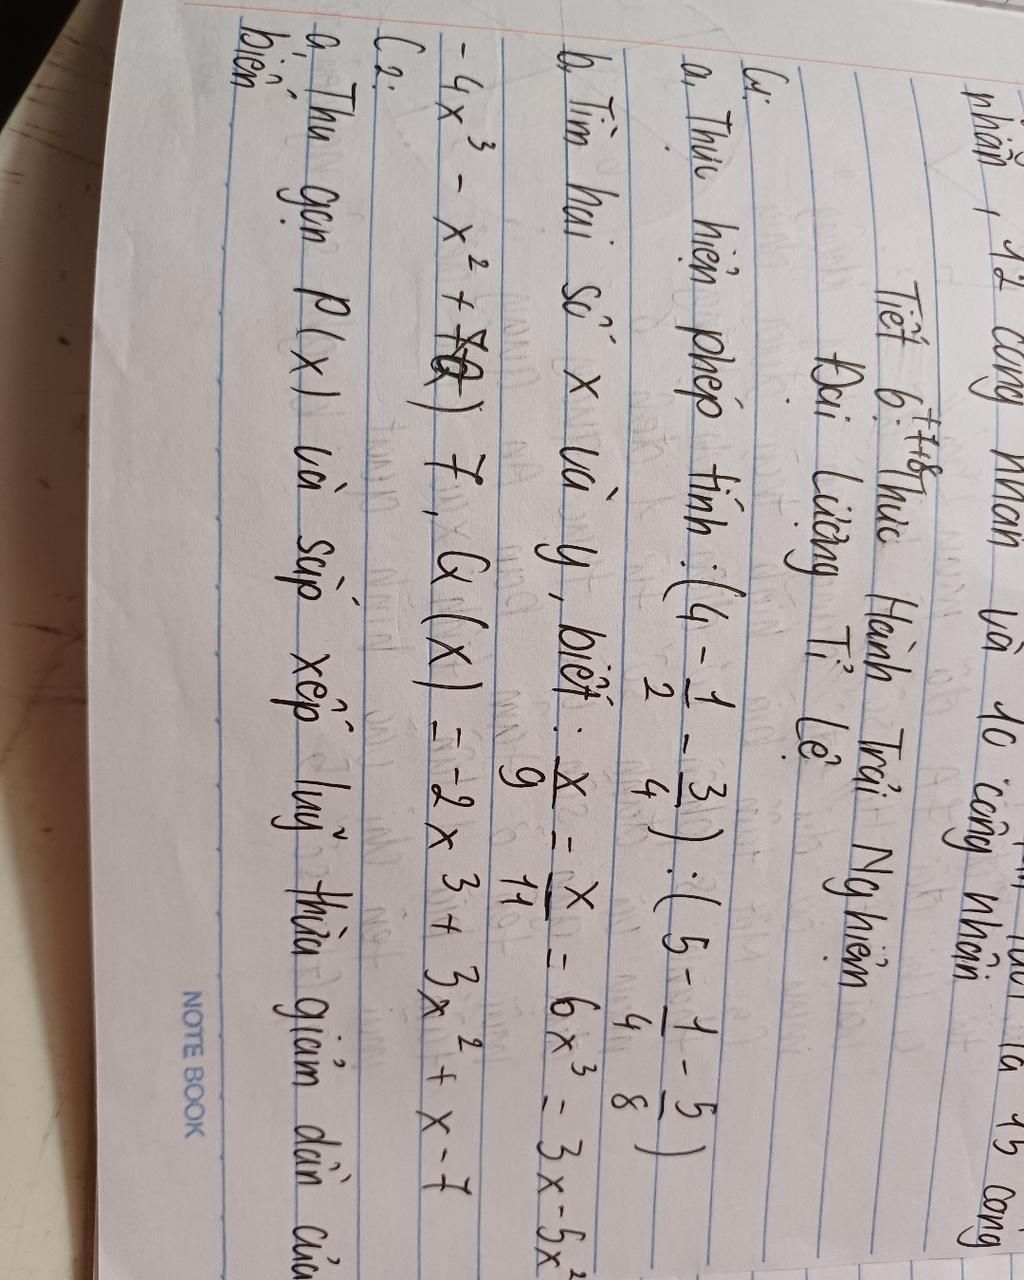 nhân, 12 công nhân và 10 công nhân
Tiết 6+7+8: Thức Hành Trải Nghiệm
Đai Lượng Tỉ Lệ
C1:
a, Thưc hiện phép tính: (4 - 1/2 - 3/4) : (5 - 1/4 - 5/8)
b, Tìm hai số x và y, biết: x/9 = x/11 = 6x³ = 3x - 5x²
- 4x³ - x² + 7, Q(x) = -2x3 + 3x² + x - 7
C2:
a, Thu gọn P(x) và sắp xếp luỹ thừa giảm dần của
biến
NOTE BOOK